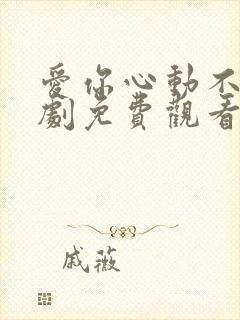 愛你心動不
劇免費觀看
戚薇